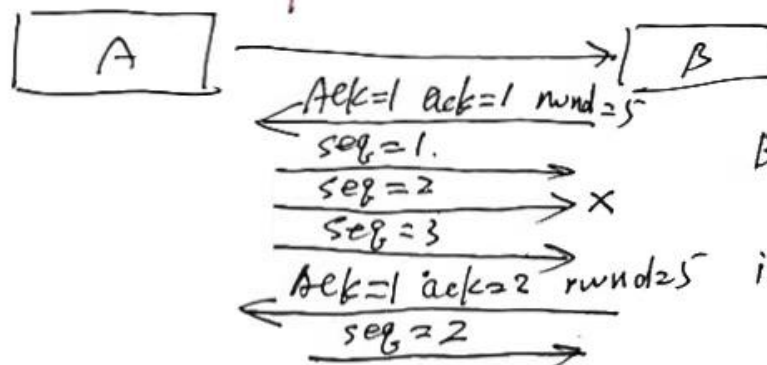 A
B
ACK=1 ack=1 rwnd=5
seq=1.
seq=2
×
seq=3
ACK=1 ack=2 rwnd=5
seq=2